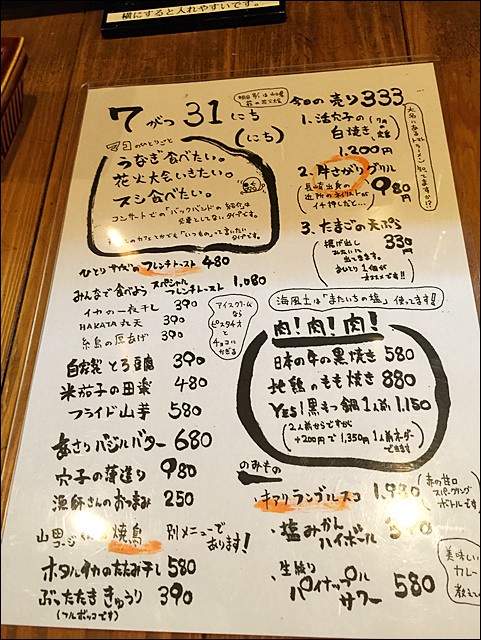 横にすると入れやすいです。
7がつ31にち
(にち)
のひとりごと
うなぎ食べたい。
花火大会いきたい。
スシ食べたい。
コンサートでの「バックバンドの
必要としてないタイプです。
カフェとかでも「いつもの」って言いたい
タイプです。
ひとりサイズのフレンチトースト 480
みんなで食べよう スペシャルフレンチトースト 1,080
イカの一夜干し 390
HAKATA丸天 390
糸島の厚あげ 390
アイスクリーム
なら
ピスタチオ
と
チョコに
かぎる
自家製 とろ豆腐 390
米茄子の田楽 480
フライド山芋 580
あさりバジルバター 680
穴子の薄造り 980
漁師さんのおつまみ 250
山田
焼鳥 別メニューで
あります!
ホタルイカのたたみ干し 580
ぶったたききゅうり 390
(フルボッコです)
今日の売り333
1. 活穴子の
白焼き
1,200円
2. 牛さがりグリル
980円
長崎出身の
近所のネイリストが
イチ押しだと…
3. たまごの天ぷら
330円
揚げ出し
みたいに
出てきます。
おひとり1個が
オススメです!!
大名にある
トマト
ラーメン
知ってますか!?
海風土は「またいちの塩」使ってます!!
肉!肉!肉!
日本の牛の黒焼き 580
地鶏のもも焼き 880
Yes!黒もつ鍋1人前 1,150
(2人前からですが
+200円で1,350円1人前オーダー
できます)
のみもの
・キアリ ランブルスコ 1,980
(赤の甘口
スパークリング
ボトルです)
・塩みかん
ハイボール
・生絞り
パイナップル
サワー 580
美味しい
カレー
教えて